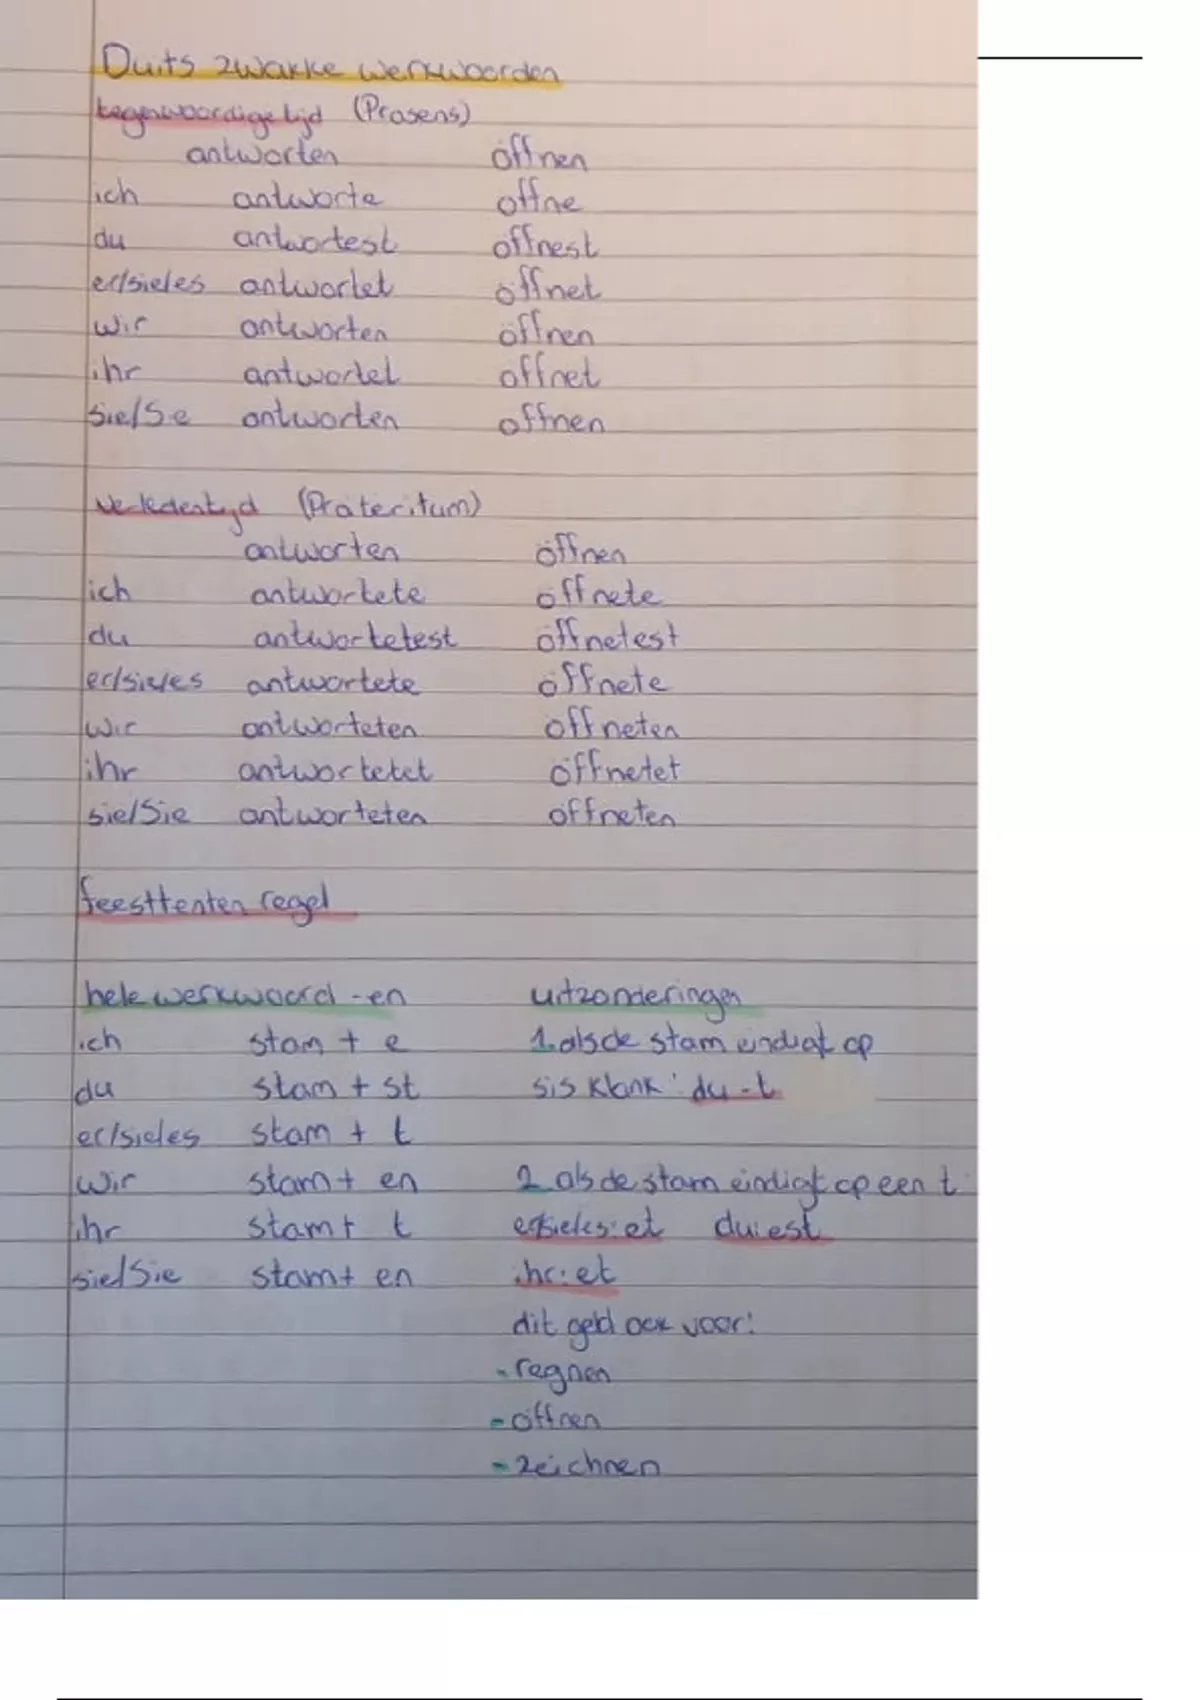 Duits zwakke werkwoorden
tegenwoordige tijd (Präsens)
antworten öffnen
ich antworte öffne
du antwortest öffnest
er/sie/es antwortet öffnet
wir antworten öffnen
ihr antwortet öffnet
sie/Sie antworten öffnen
verledentijd (Präteritum)
antworten öffnen
ich antwortete öffnete
du antwortetest öffnetest
er/sie/es antwortete öffnete
wir antworteten öffneten
ihr antwortetet öffnetet
sie/Sie antworteten öffneten
feesttenten regel
hele werkwoord -en uitzonderingen
ich stam + e 1. als de stam eindigt op
du stam + st sis klank: du -t
er/sie/es stam + t
wir stam + en 2 als de stam eindigt op een t:
ihr stam + t er/sie/es: et du: est
sie/Sie stam + en ihr: et
dit geld ook voor:
- regnen
- öffnen
- zeichnen